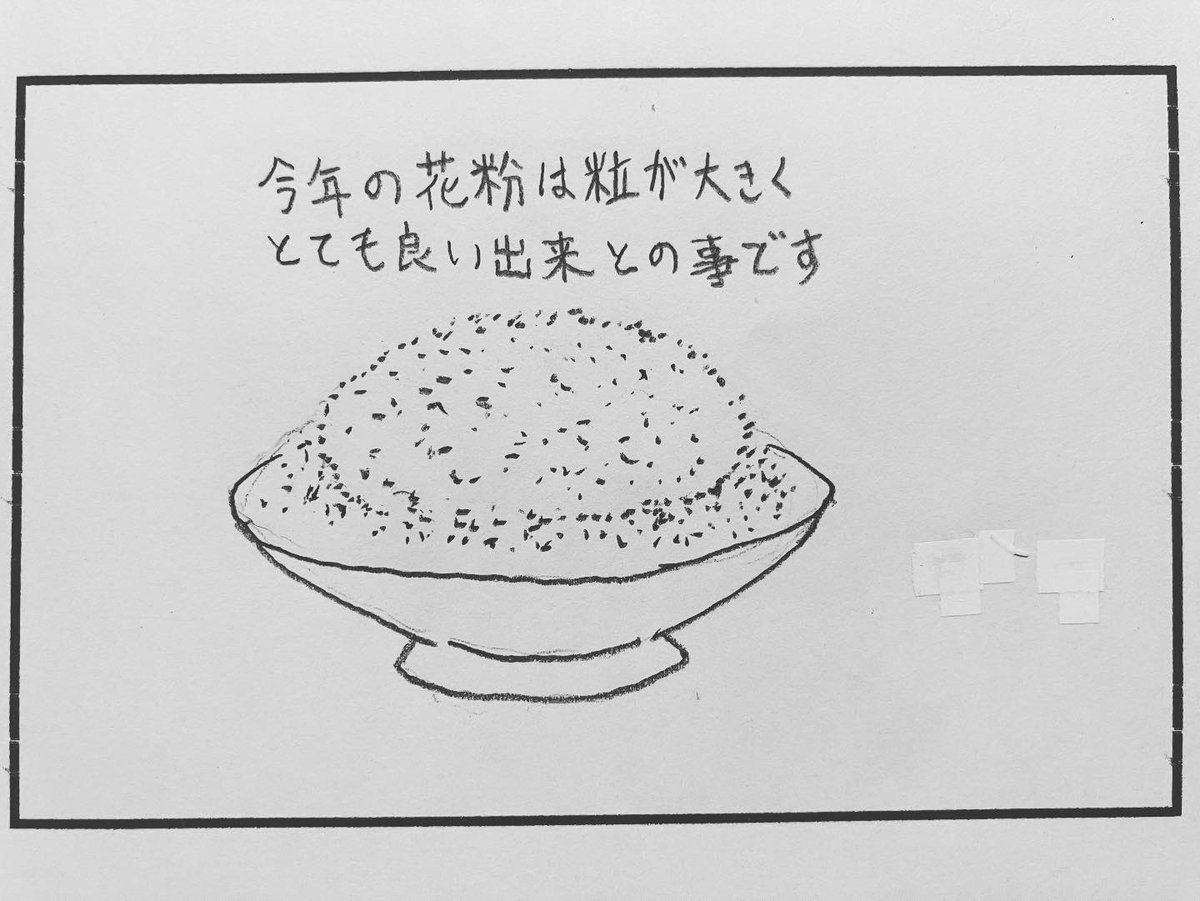 今年の花粉は粒が大きく
とても良い出来との事です